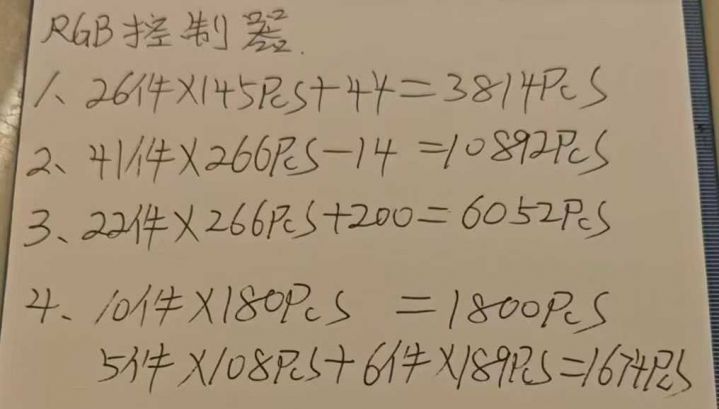 RGB控制器
1、26件×145PCS+44=3814PCS
2、41件×266PCS-14=10892PCS
3、22件×266PCS+200=6052PCS
4、10件×180PCS =1800PCS
5件×108PCS+6件×189PCS=1674PCS